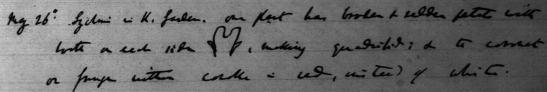 Aug 26° Lychnis in K. Garden. one plant has broader & redder petals with
tooth on each side , making quadrifid; & the coronet
or fringe within corolla is red, instead of white.